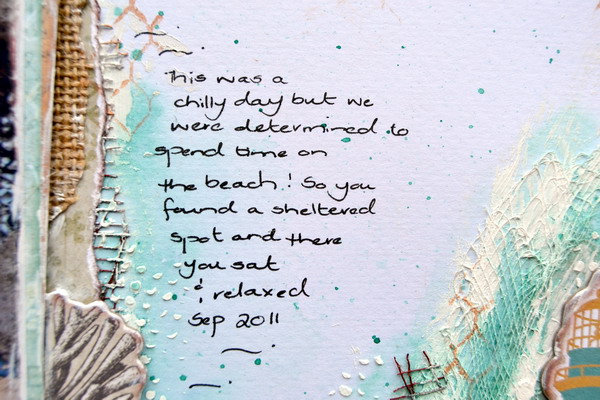 This was a
chilly day but we
were determined to
spend time on
the beach! So you
found a sheltered
spot and there
you sat
& relaxed
Sep 2011